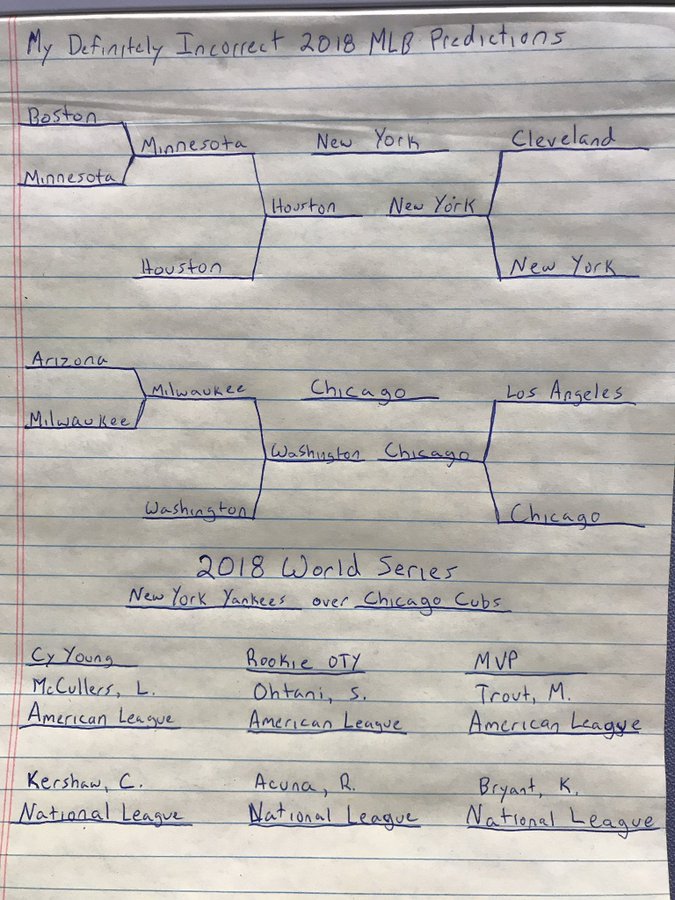 My Definitely Incorrect 2018 MLB Predictions
Boston
Minnesota
Minnesota
Houston
Houston
New York
New York
Cleveland
New York
Arizona
Milwaukee
Milwaukee
Washington
Washington
Chicago
Chicago
Los Angeles
Chicago
2018 World Series
New York Yankees over Chicago Cubs
Cy Young
McCullers, L.
American League
Kershaw, C.
National League
Rookie OTY
Ohtani, S.
American League
Acuna, R.
National League
MVP
Trout, M.
American League
Bryant, K.
National League